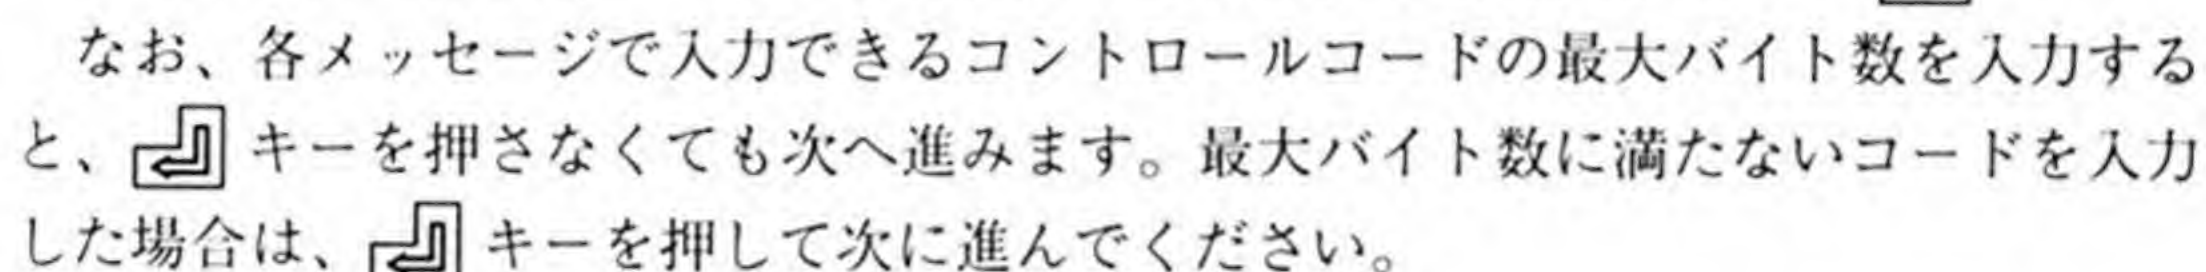 なお、各メッセージで入力できるコントロールコードの最大バイト数を入力する
と、キーを押さなくても次へ進みます。最大バイト数に満たないコードを入力
した場合は、キーを押して次に進んでください。